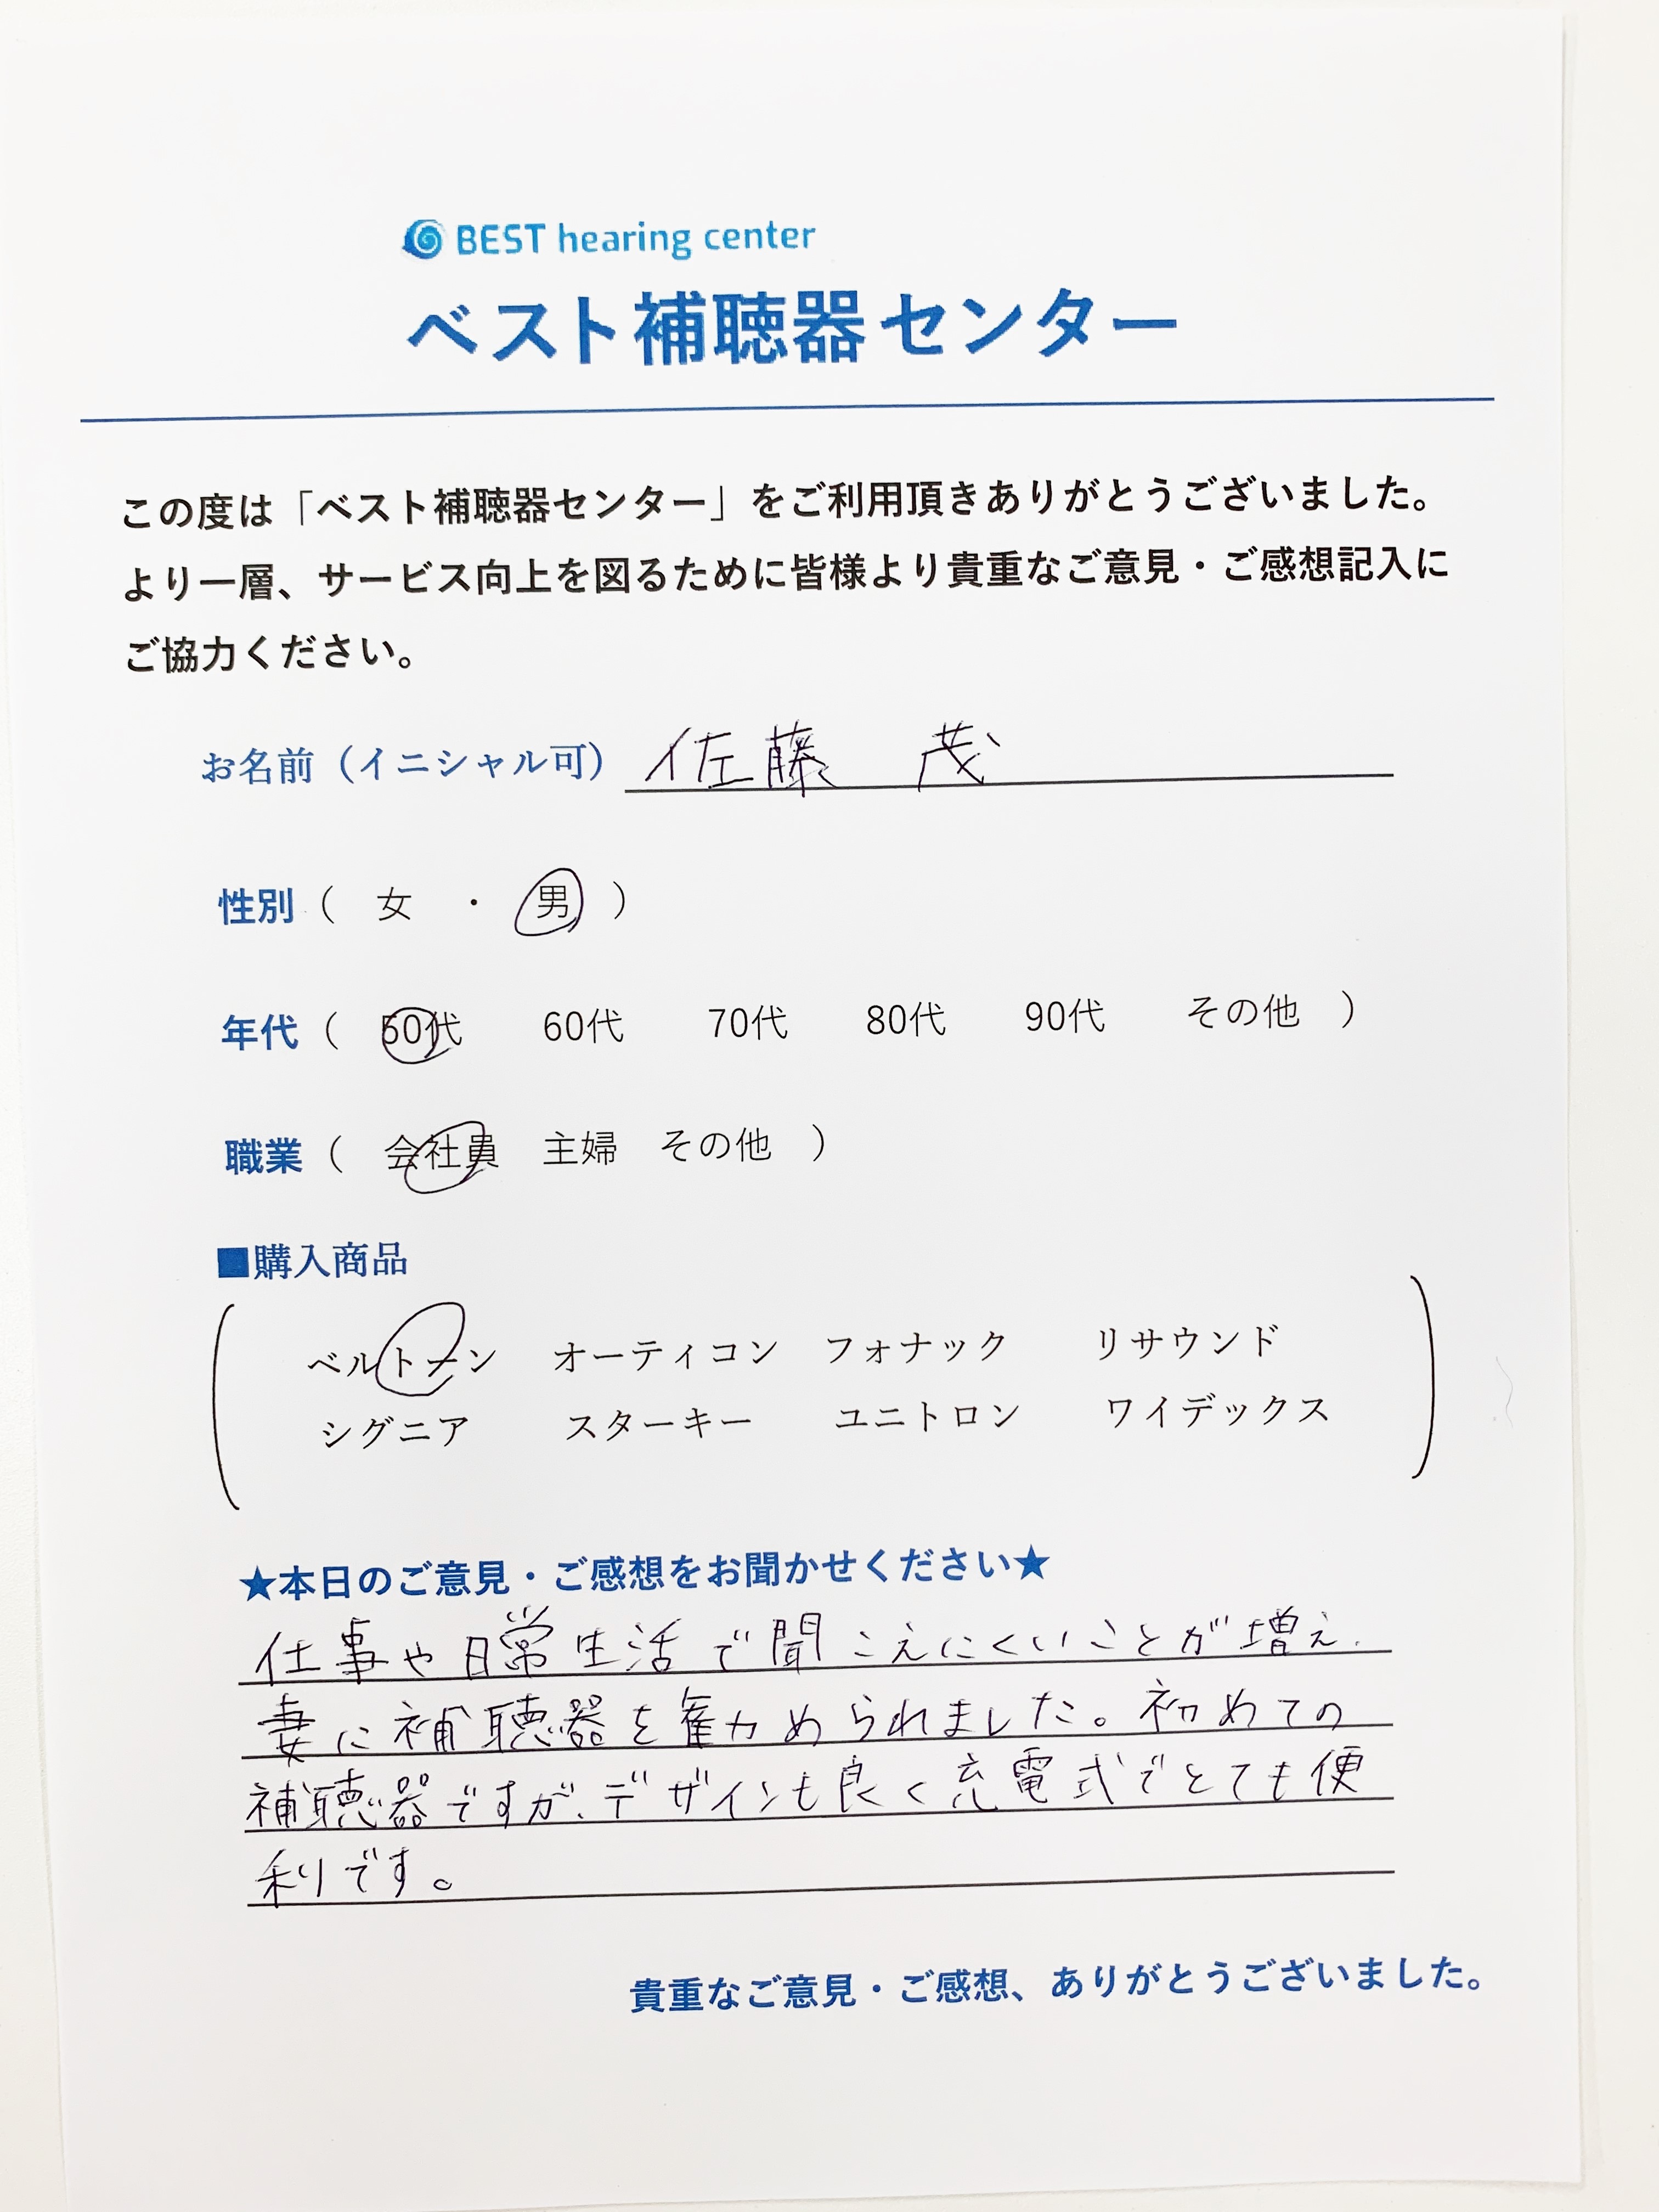 BEST hearing center
ベスト補聴器センター
この度は「ベスト補聴器センター」をご利用頂きありがとうございました。
より一層、サービス向上を図るために皆様より貴重なご意見・ご感想記入に
ご協力ください。
お名前（イニシャル可） 佐藤 茂
性別（ 女 ・ 男 ）
年代（ 50代 60代 70代 80代 90代 その他 ）
職業（ 会社員 主婦 その他 ）
■購入商品
ベルトーン オーティコン フォナック リサウンド
シグニア スターキー ユニトロン ワイデックス
★本日のご意見・ご感想をお聞かせください★
仕事や日常生活で聞こえにくいことが増え、
妻に補聴器を勧められました。初めての
補聴器ですが、デザインも良く充電式でとても便
利です。
貴重なご意見・ご感想、ありがとうございました。